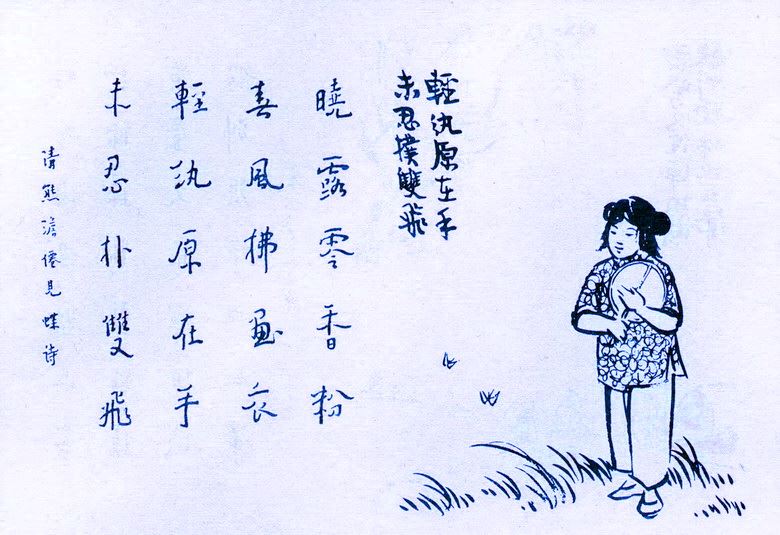 輕紈原在手
未忍撲雙飛
曉露零香粉
春風拂畫衣
輕紈原在手
未忍扑雙飛
清熊澹僊見蝶诗